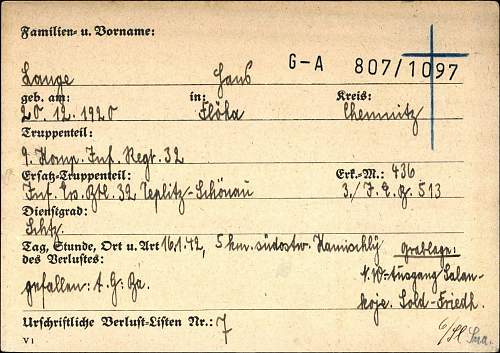 Familien- u. Vorname:
G-A 807/1097
Lange Hans
geb. am: in: Kreis:
20.12.1920 Flöha Chemnitz
Truppenteil:
9. Komp. Inf. Regt. 32
Ersatz-Truppenteil: Erk.-M.: 436
Inf. Ers. Btl. 32 Teplitz-Schönau 3./J.E.B. 513
Dienstgrad:
Schtz.
Tag, Stunde, Ort u. Art 16.1.42, 5 km. südostw. Kamischlij Grablage:
des Verlustes:
gefallen: A.G: N.W-Ausgang
Sold-Friedh.
Urschriftliche Verlust-Listen Nr.: 7
V 1